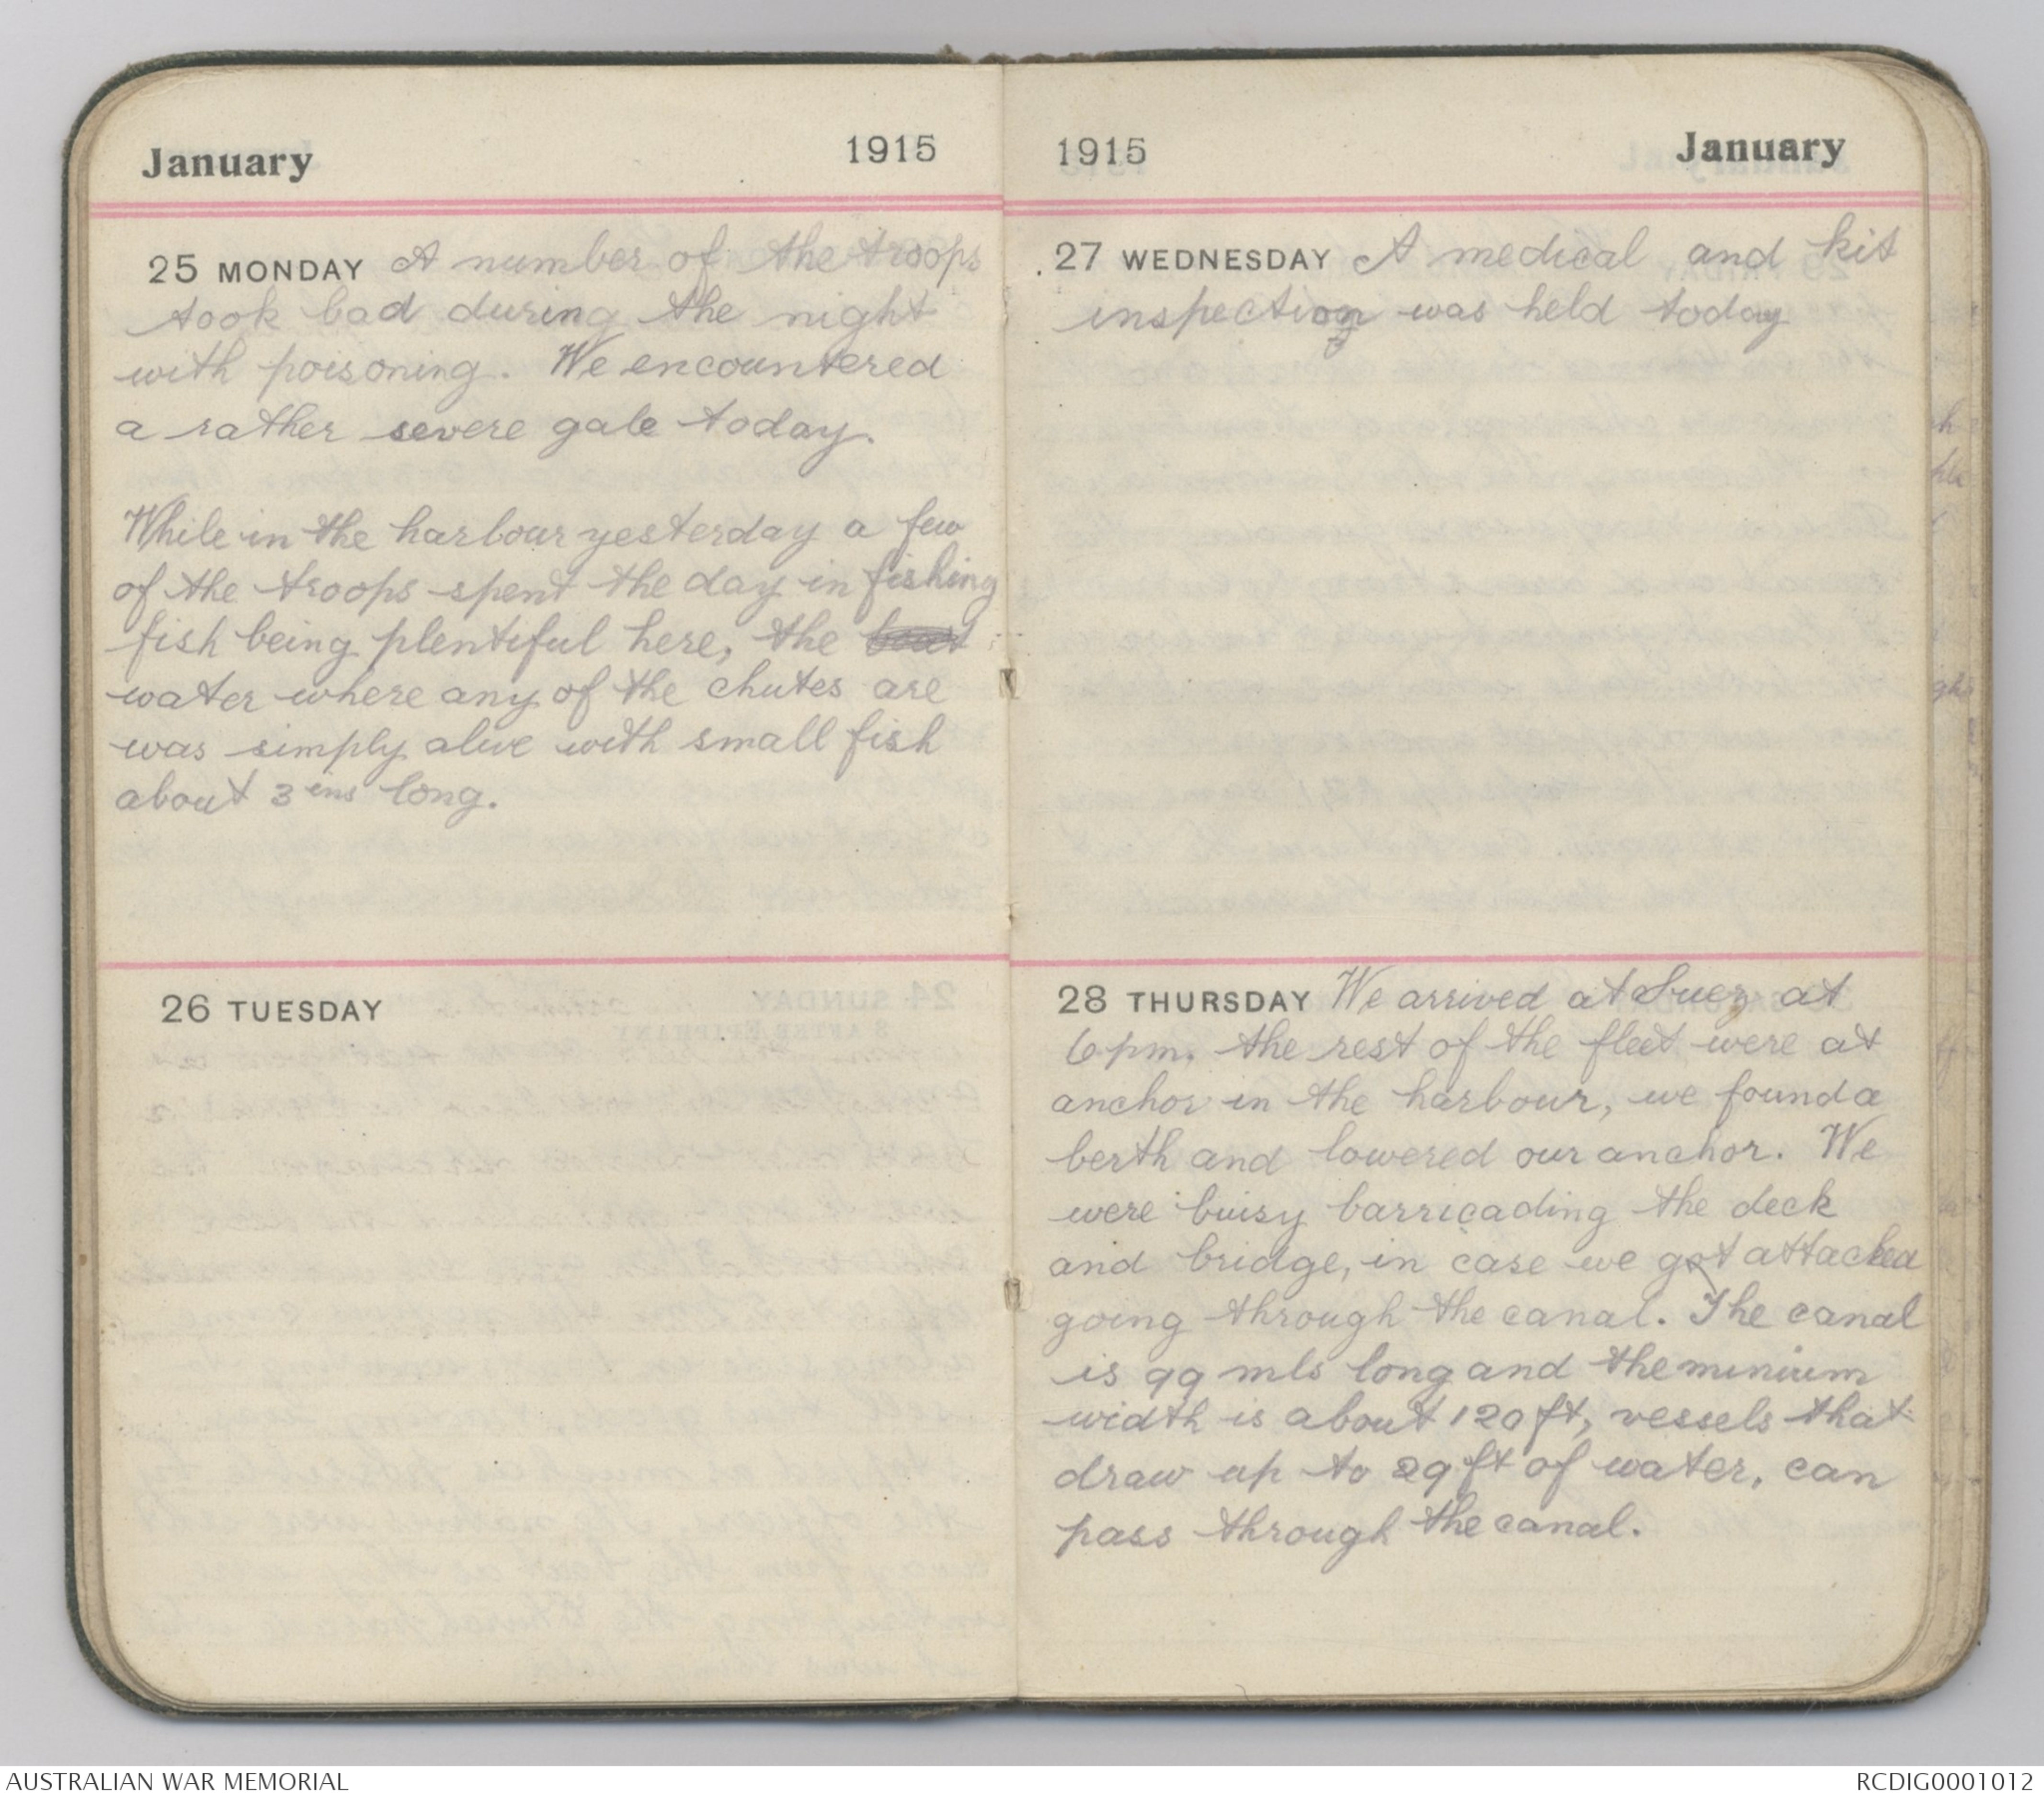 January 1915
25 MONDAY A number of the troops
took bad during the night
with poisoning. We encountered
a rather severe gale today.
While in the harbour yesterday a few
of the troops spent the day in fishing
fish being plentiful here, the boat
water where any of the chutes are
was simply alive with small fish
about 3 ins long.
26 TUESDAY
1915 January
27 WEDNESDAY A medical and kit
inspection was held today
28 THURSDAY We arrived at Suez at
6 pm. the rest of the fleet were at
anchor in the harbour, we found a
berth and lowered our anchor. We
were buisy barricading the deck
and bridge, in case we got attacked
going through the canal. The canal
is 99 mls long and the minium
width is about 120 ft, vessels that
draw up to 29 ft of water, can
pass through the canal.
AUSTRALIAN WAR MEMORIAL
RCDIG0001012